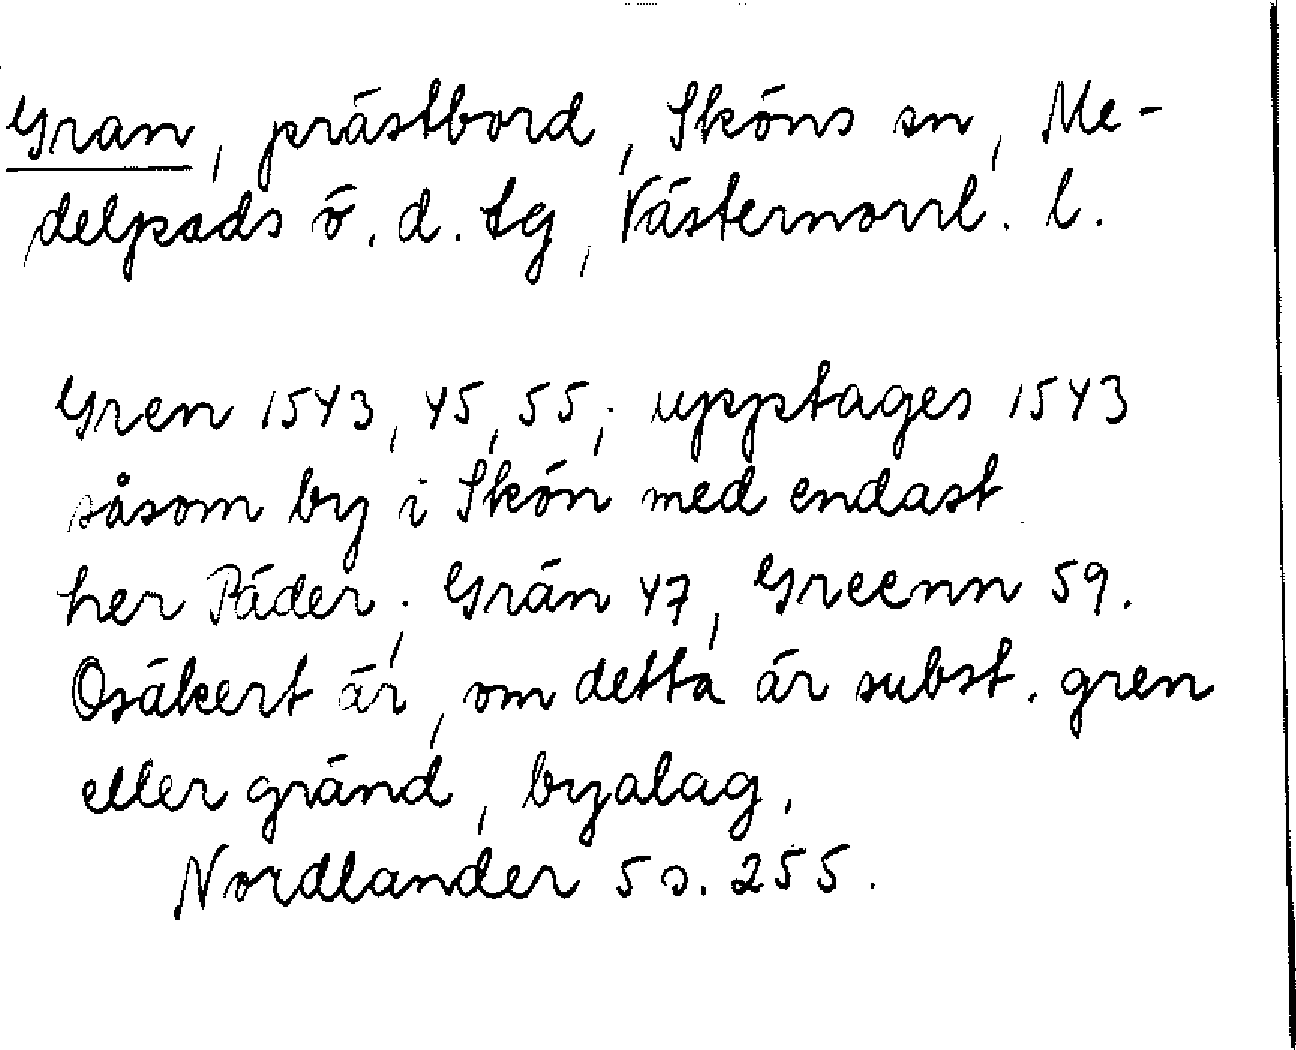 Gran, prästbord, Sköns sn, Me-
delpads ö. d. tg, Västernorrl. l.
Gren 1543, 45, 55; upptages 1543
såsom by i Skön med endast
her Päder; Grän 47, Greenn 59.
Osäkert är, om detta är subst. gren
eller gränd, byalag.
Nordlander 5 s. 255.